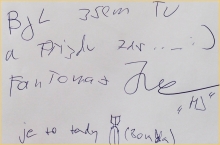 Byl jsem tu
a Přijdu zas..._:)
FanTomas
"HJ"
je to tady (Bomba)